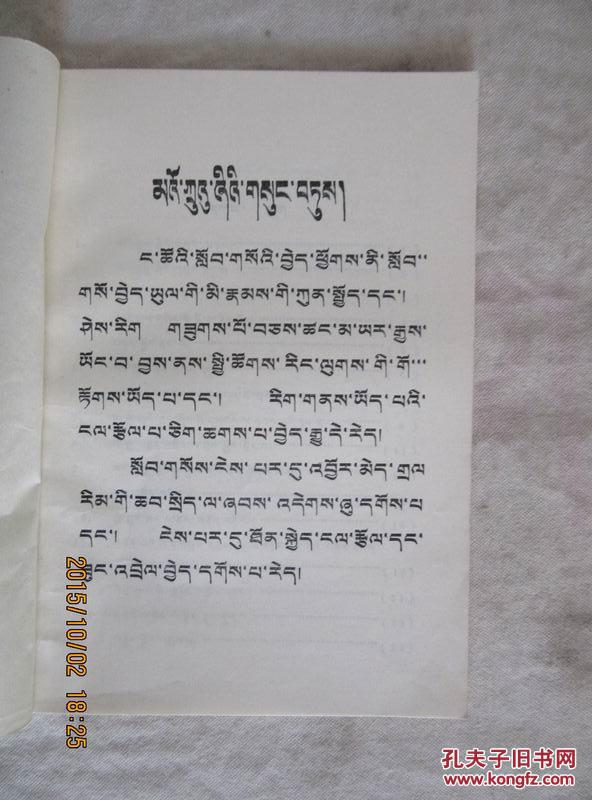 མའོ་ཀྲུའུ་ཞིའི་གསུང་བཏུས།
ང་ཚོའི་སློབ་གསོའི་བྱེད་ཕྱོགས་ནི་སློབ་་
གསོ་བྱེད་ཡུལ་གི་མི་རྣམས་གི་ཀུན་སྤྱོད་དང་།
ཤེས་རིག གཟུགས་པོ་བཅས་ཚང་མ་ཡར་རྒྱས་
ཡོང་བ་བྱས་ནས་སྤྱི་ཚོགས་རིང་ལུགས་གི་གོ་་་
རྟོགས་ཡོད་པ་དང་། རིག་གནས་ཡོད་པའི་
ངལ་རྩོལ་པ་ཅིག་ཆགས་པ་བྱེད་རྒྱུ་དེ་རེད།
སློབ་གསོས་ངེས་པར་དུ་འབྱོར་མེད་གྲལ
རིམ་གི་ཆབ་སྲིད་ལ་ཞབས་འདེགས་ཞུ་དགོས་པ
དང་། ངེས་པར་དུ་ཐོན་སྐྱེད་ངལ་རྩོལ་དང་
ཟུང་འབྲེལ་བྱེད་དགོས་པ་རེད།
2015/10/02 18:25
孔夫子旧书网
www.kongfz.com